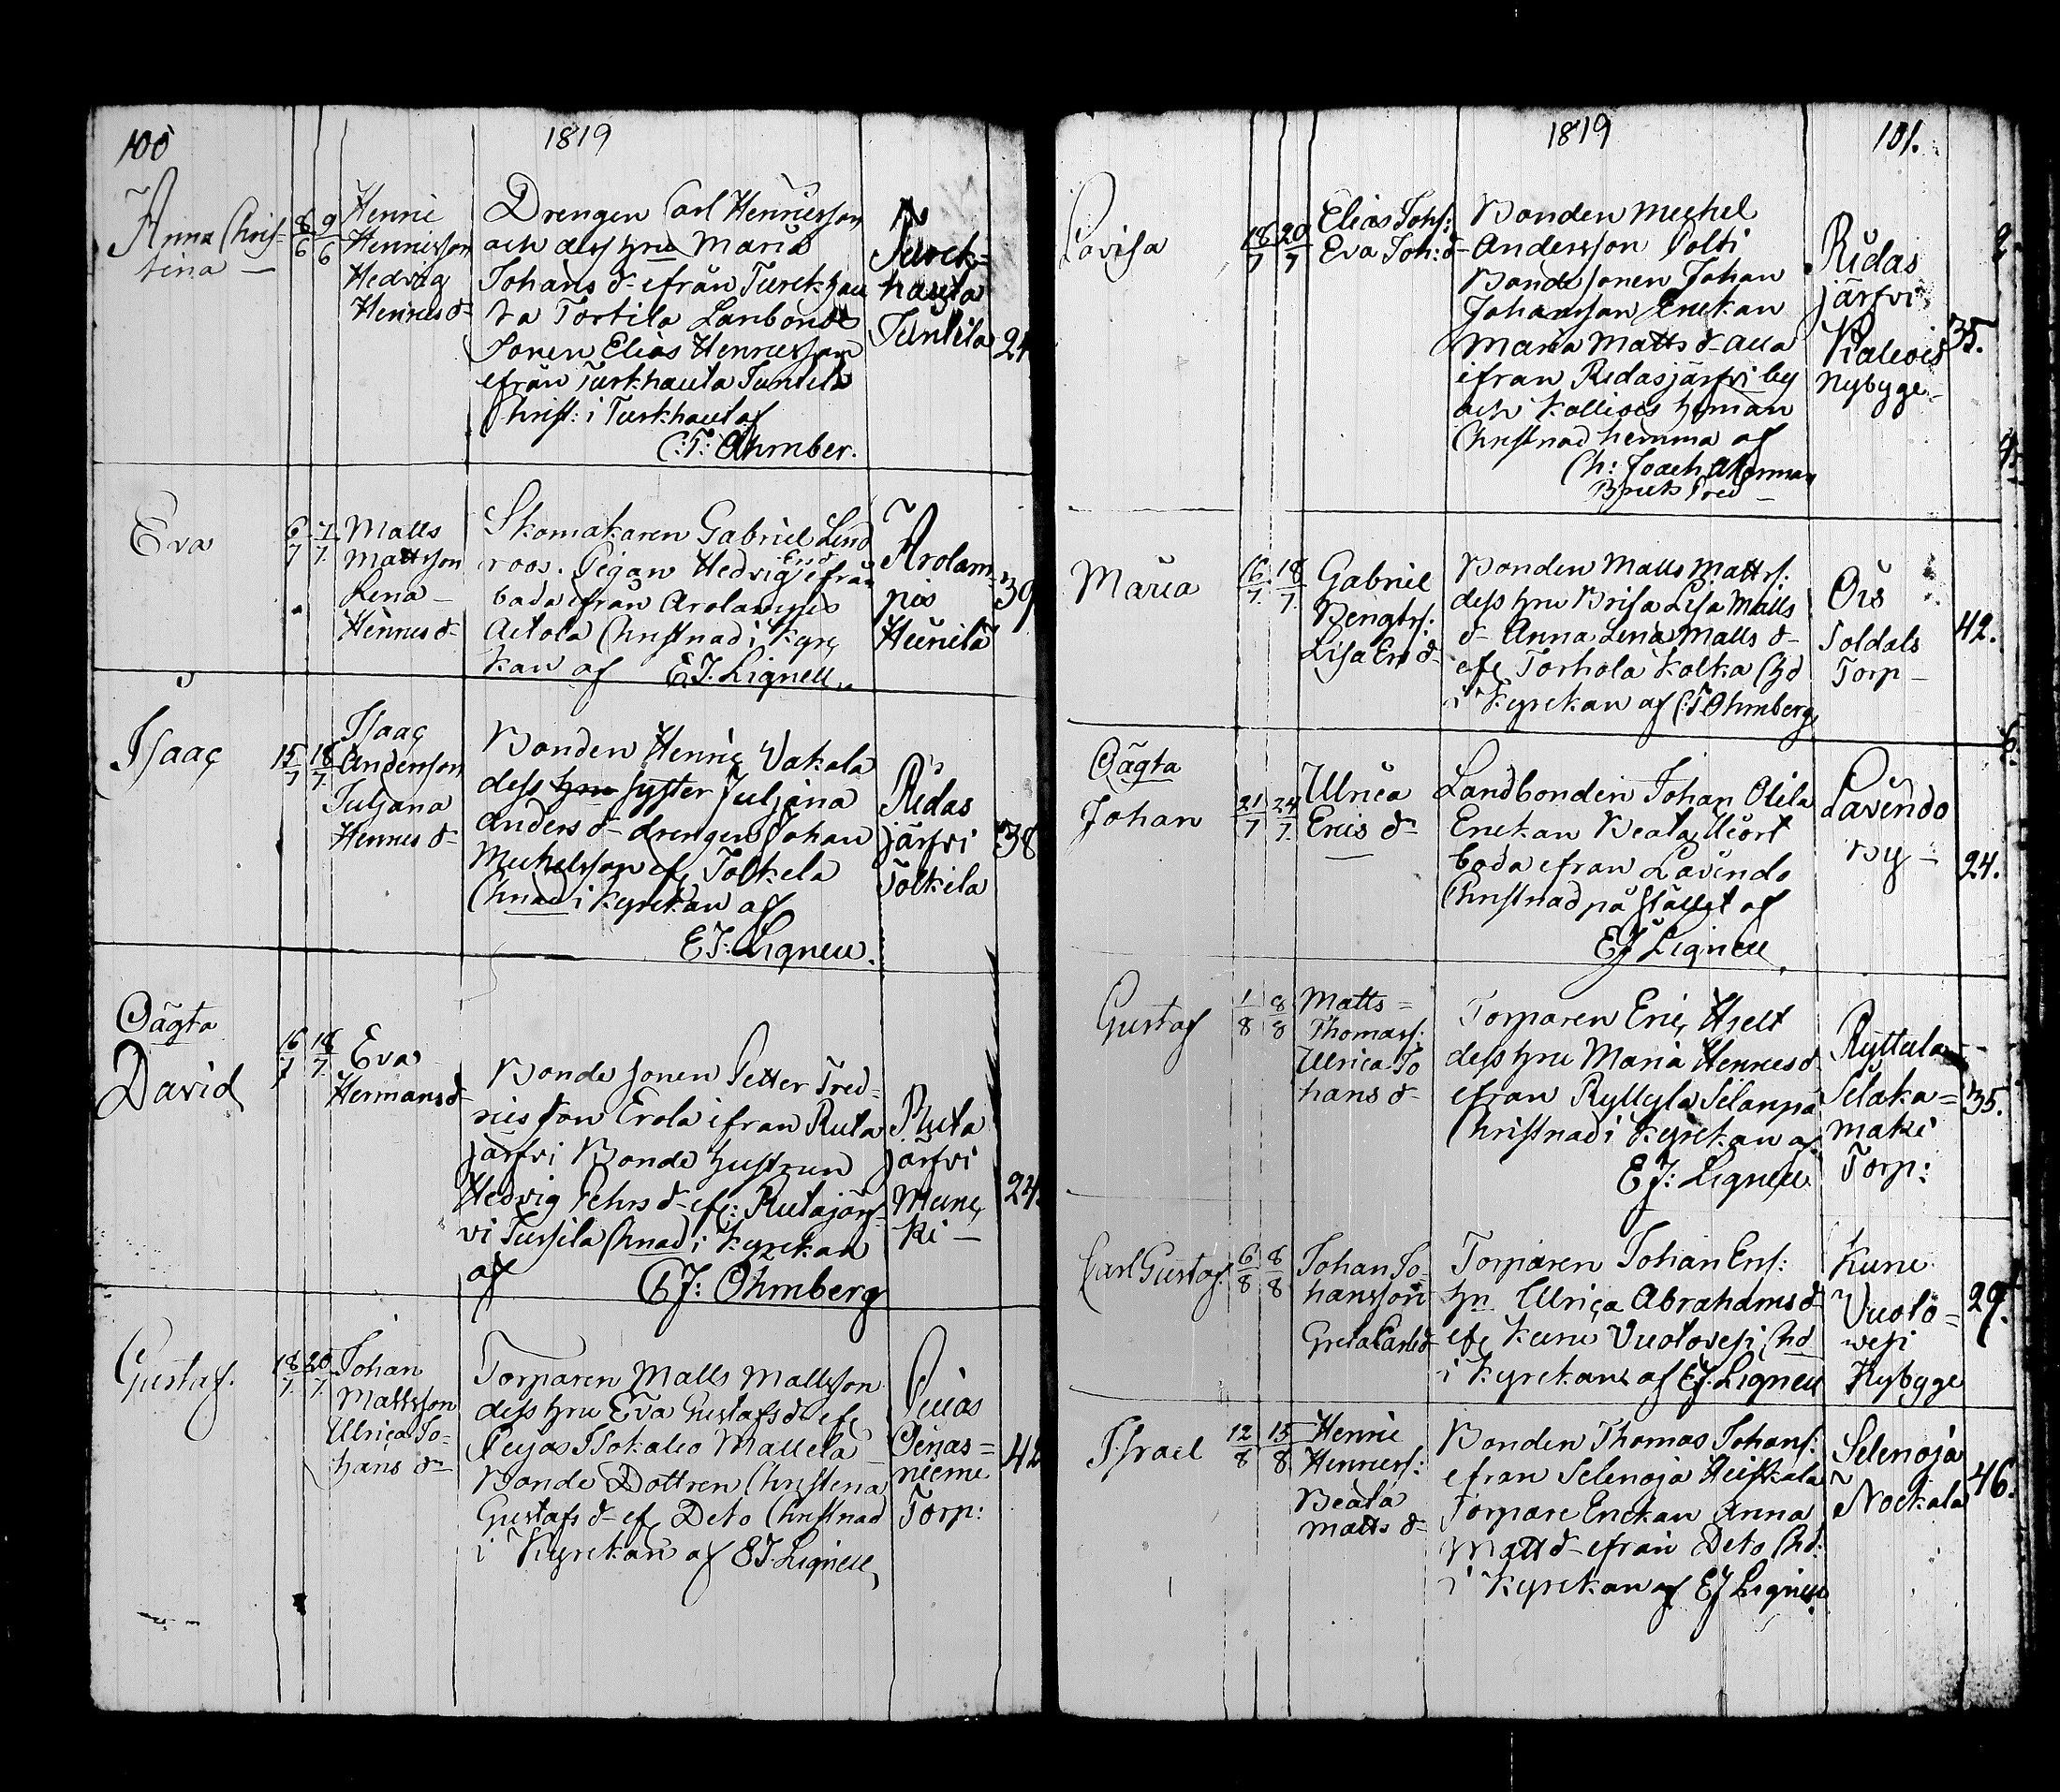 100
1819
Anna Chris=
tina —
8/6 9/6
Henric
Henricsson
Hedvig
Henricsd-
Drengen Carl Henricsson
och dess hru Maria
Johans d- ifrån Turekhau
ta Tortila Lanbonde
Sonen Elias Henricsson
ifrån Turkhauta Juntila
Christ: i Turkhaut af
C:T: Ohmber.
Turek=
hauta
Juntila
24
Eva
6/7 7/7
Matts
Mattson
Lena —
Henricsd-
Skomakaren Gabriel Lind
roos. Pigan Hedvig Ersd ifrån
bada ifrån Arolampis
Aetola Christnad i Kyrc
kan af E.J. Lignell
Arolam
pis
Heunila
39
Isaac
15/7 18/7
Isaac
Andersson
Juljana
Henrics d-
Bonden Henric Vakala
dess hru syster Juljana
Anders d- drengen Johan
Michelsson if Tolkela
Chnad i Kyrckan af
E.J. Lignell.
Ridas
järfvi
Tolkila
38
Oägta
David
16/7 18/7
Eva
Hermansd-
Bonde sonen Petter Fred=
ricsson Erola ifran Ruta
järfvi Bonde hustrun
Hedvig Pehrs d- if: Rutajärf
vi Tussila Chnad i Kyrckan
af CJ: Ohmberg
Ruta
järfvi
Mune
ki —
24
Gustaf.
18/7 20/7
Johan
Mattsson
Ulrica Jo-
hans d-
Torparen Matts Mattsson
dess hru Eva Gustafsd- if
Pujas Isokaleo Mattela
Bonde Dottren Christena
Gustafs d- if Deto Christnad
i Kyrckan af EJ Lignell
Puias
Oenas=
nieme
Torp:
42
1819
101.
Lovisa
18/7 20/7
Elias Johs:
Eva Joh: d-
Bonden Michel
Andersson Polti
Bonde sonen Johan
Johansson Enckan
Maria Matts d- alla
ifran Ridasjärfvi by
och Kalliois heman
Christnad hemma af
Ch: Joach Akerman
Bruks Pred —
Ridas
järfvi
Kaleois
Nybyge-
35.
Maria
16/7 18/7
Gabriel
Bengts:
Lisa Er d-
Bonden Matts Matts:
dess hru Brisa Lisa Matts
d- Anna Lena Matts d-
if Torhola Kolka Chd
i Kyrckan af C:T Ohmberg
Ois
Soldats
Torp —
42.
Oägta
Johan
21/7 24/7
Ulrica
Erics d-
Landbonden Johan Olila
Enckan Beata Hiort
bada ifran Lavindo
Christnad på stället af
EJ Lignell
Lavendo
By —
24.
Gustaf
1/8 8/8
Matts=
Thomass:
Ulrica Jo
hans d-
Torparen Eric Hjelt
dess hru Maria Henricsd
ifran Ryttyla Silanpä
Christnad i Kyrckan af
EJ: Lignell
Ryttula
Selaka=
maki
Torp:
35.
Carl Gustaf.
6/8 8/8
Johan Jo-
hansson
Greta Carlsd
Torparen Johan Ers:
hu Ulrica Abrahams d-
if Kune Vuotovesi Chd
i Kyrckan af EJ. Lignell
Kune
Vuoto=
wesi
Nybyge
29.
Israel
12/8 15/8
Henric
Henricss:
Beata
Matts d-
Bonden Thomas Johans:
ifran Selenoja Heiskala
Torpare Enckan Anna
Matts d- ifrån Deto Chd:
i Kyrckan af EJ Lignell
Selenoja
Nockala
46.